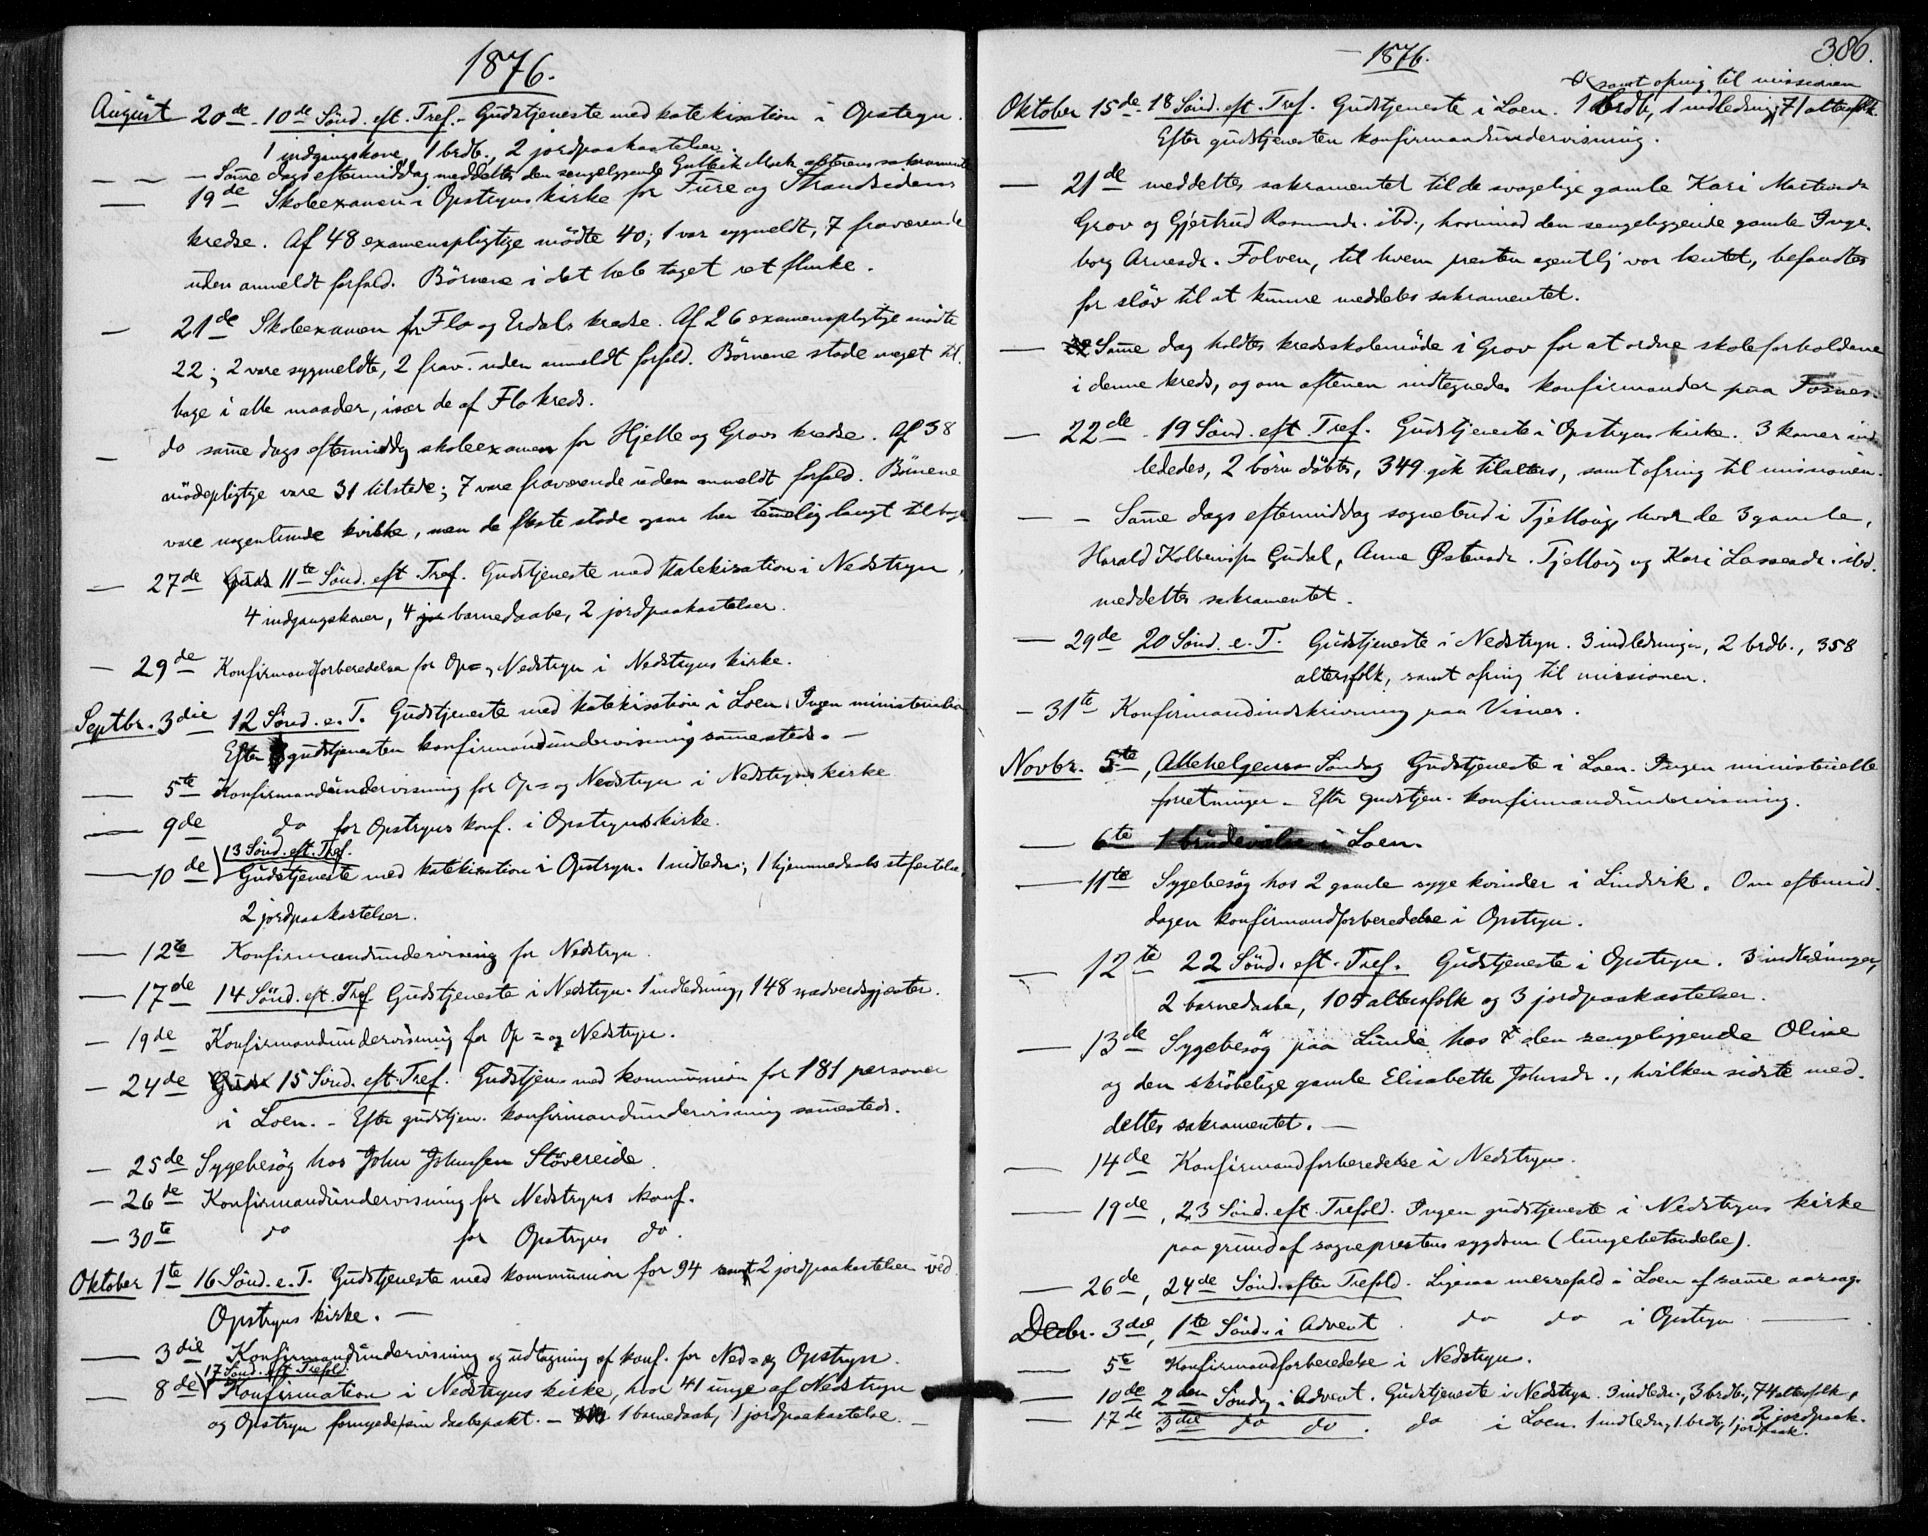 1876.
August 20de 10de Sönd. eft. Tref. - Gudstjeneste med katekisation i Opstryn.
1 indgangskone, 1 brdb., 2 jordpaakastelser.
— — — Same dags eftermiddag meddeltes den sengeliggende Guttorm alterens sakramente
— 19de Skoleexamen i Opstryns kirke for Fure og Strandsidens
kredse. Af 48 examenspligtige mödte 40; 1 var sygmeldt, 7 fraværende
uden anmeldt forfald. Börnene i det hele taget ret flinke.
— 21de Skoleexamen for Flo og Erdals kredse. Af 26 examenspligtige mödte
22; 2 vare sygmeldte, 2 frav. uden anmeldt forfald. Börnene stode meget til
bage i alle maader, især de af Flo kreds.
— do same dags eftermiddag skoleexamen for Hjelle og Gravs kredse. Af 38
mödepligtige vare 31 tilstede; 7 vare fraværende uden anmeldt forfald. Börnene
vare nogenlunde kvikke, men de fleste stode ogsaa her temelig langt tilbage
— 27de Guds 11te Sönd. eft. Tref. Gudstjeneste med katekisation i Nedstryn,
4 indgangskoner, 4 jor barnedaabe, 2 jordpaakastelser.
— 29de Konfirmandforberedelse for Op= og Nedstryn i Nedstryns kirke.
Septbr. 3die 12 Sönd. e. T. Gudstjeneste med katekisation i Loen. Ingen ministerialia
Efter gudstjenesten konfirmandundervisning samesteds. —
— 5te Konfirmandundervisning for Op= og Nedstryn i Nedstryns kirke
— 9de do for Opstryns konf. i Opstryns kirke.
13 Sönd. eft. Tref.
— 10de Gudstjeneste med katekisation i Opstryn. 1 indledn., 1 hjemmedaabs stadfæstelse,
2 jordpaakastelser.
— 12te Konfirmandundervisning for Nedstryn.
— 17de 14 Sönd. eft. Tref Gudstjeneste i Nedstryn. 1 indledning, 148 nadverdsgjester.
— 19de Konfirmandundervisning for Op= og Nedstryn.
— 24de Guds 15 Sönd. eft. Tref. Gudstjen. med kommunion for 181 personer
i Loen. - Efter gudstjen. konfirmandundervisning samesteds.
— 25de Sygebesög hos John Johnsen Stövereide.
— 26de Konfirmandundervisning for Nedstryns konf.
— 30te do for Opstryns do.
Oktober 1te 16 Sönd. e. T. Gudstjeneste med kommunion for 94 samt 2 jordpaakastelser ved
Opstryns kirke. —
— 3die Konfirmandundervisning og udtagning af konf. for Ned= og Opstryn.
17 Sönd. eft. Trefold.
— 8de Konfirmation i Nedstryns kirke, hvor 41 unge af Nedstryn
og Opstryn fornyede sin daabspakt. — 1 barnedaab, 1 jordpaakastelse. —
386.
1876.
samt ofring til missionen
Oktober 15de 18 Sönd. eft. Tref. Gudstjeneste i Loen. 1 brdb, 1 indledning, 71 altersfolk.
Efter gudstjenesten konfirmandundervisning.
— 21de meddeltes sakramentet til de svagelige gamle Kari Martinsdr.
Grov og Gjertrud Rasmusdr. ibd., hvorimod den sengeliggende gamle Inge-
borg Arnesdr. Folven, til hvem presten egentlig var hentet, befandtes
for slöv til at kunne meddeles sakramentet.
— 22 Same dag holdtes kredsskolemöde i Grov for at ordne skoleforholdene
i denne kreds, og om aftenen indtegnedes konfirmander paa Fosnes.
— 22de 19 Sönd. eft. Tref. Gudstjeneste i Opstryns kirke. 3 koner ind
lededes, 2 börn döbtes, 349 gik tilalters, samt ofring til missionen.
— — Same dags eftermiddag sognebud i Tjellaug, hvor de 3 gamle,
Harald Kolbeinss. Gudal, Anne Østensdr. Tjellaug og Kari Lassesdr. ibd.
meddeltes sakramentet.
— 29de 20 Sönd. e. T. Gudstjeneste i Nedstryn. 3 indledninger, 2 brdb., 358
altersfolk, samt ofring til missionen.
— 31te Konfirmandindskrivning paa Visnes.
Novbr. 5te, Allehelgens Söndag Gudstjeneste i Loen. Ingen ministerielle
forretninger - Efter gudstjen. konfirmandundervisning.
— 6te 1 brudevielse i Loen.
— 11te Sygebesög hos 2 gamle syge kvinder i Lindvik. Om eftermid-
dagen konfirmandforberedelse i Opstryn.
— 12te 22 Sönd. eft. Tref. Gudstjeneste i Opstryn. 3 indledninger,
2 barnedaabe, 105 altersfolk og 3 jordpaakastelser.
— 13de Sygebesög paa Lunde hos den sengeliggende Oline
og den skröbelige gamle Elisabette Johnsdr., hvilken sidste med-
deltes sakramentet. —
— 14de Konfirmandforberedelse i Nedstryn.
— 19de, 23 Sönd. eft. Trefold. Ingen gudstjeneste i Nedstryns kirke
paa grund af sogneprestens sygdom (lungebetændelse).
— 26de, 24de Sönd. efter Trefold. Ligesaa messefald i Loen af same aarsag.
Decbr. 3die, 1te Sönd. i Advent. do do i Opstryn —
— 5te Konfirmandforberedelse i Nedstryn.
— 10de 2den Söndg i Advent. Gudstjeneste i Nedstryn. 3 indledn., 3 brdb., 74 altersfolk, 2 jordpaak.
— 17de 3die do do. do i Loen. 1 indledn., 1. brdb., 1 jordpaak.